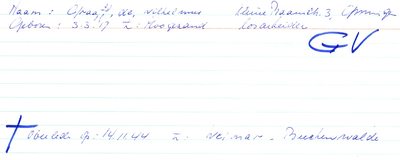 Naam: Graaff, de, Wilhelmus Kleine Raamstr. 3, Groningen
Geboren: 3.3.'17 te: Hoogezand losarbeider
GV
Overleden op: 14.11.44 te: Weimar - Buchenwalde